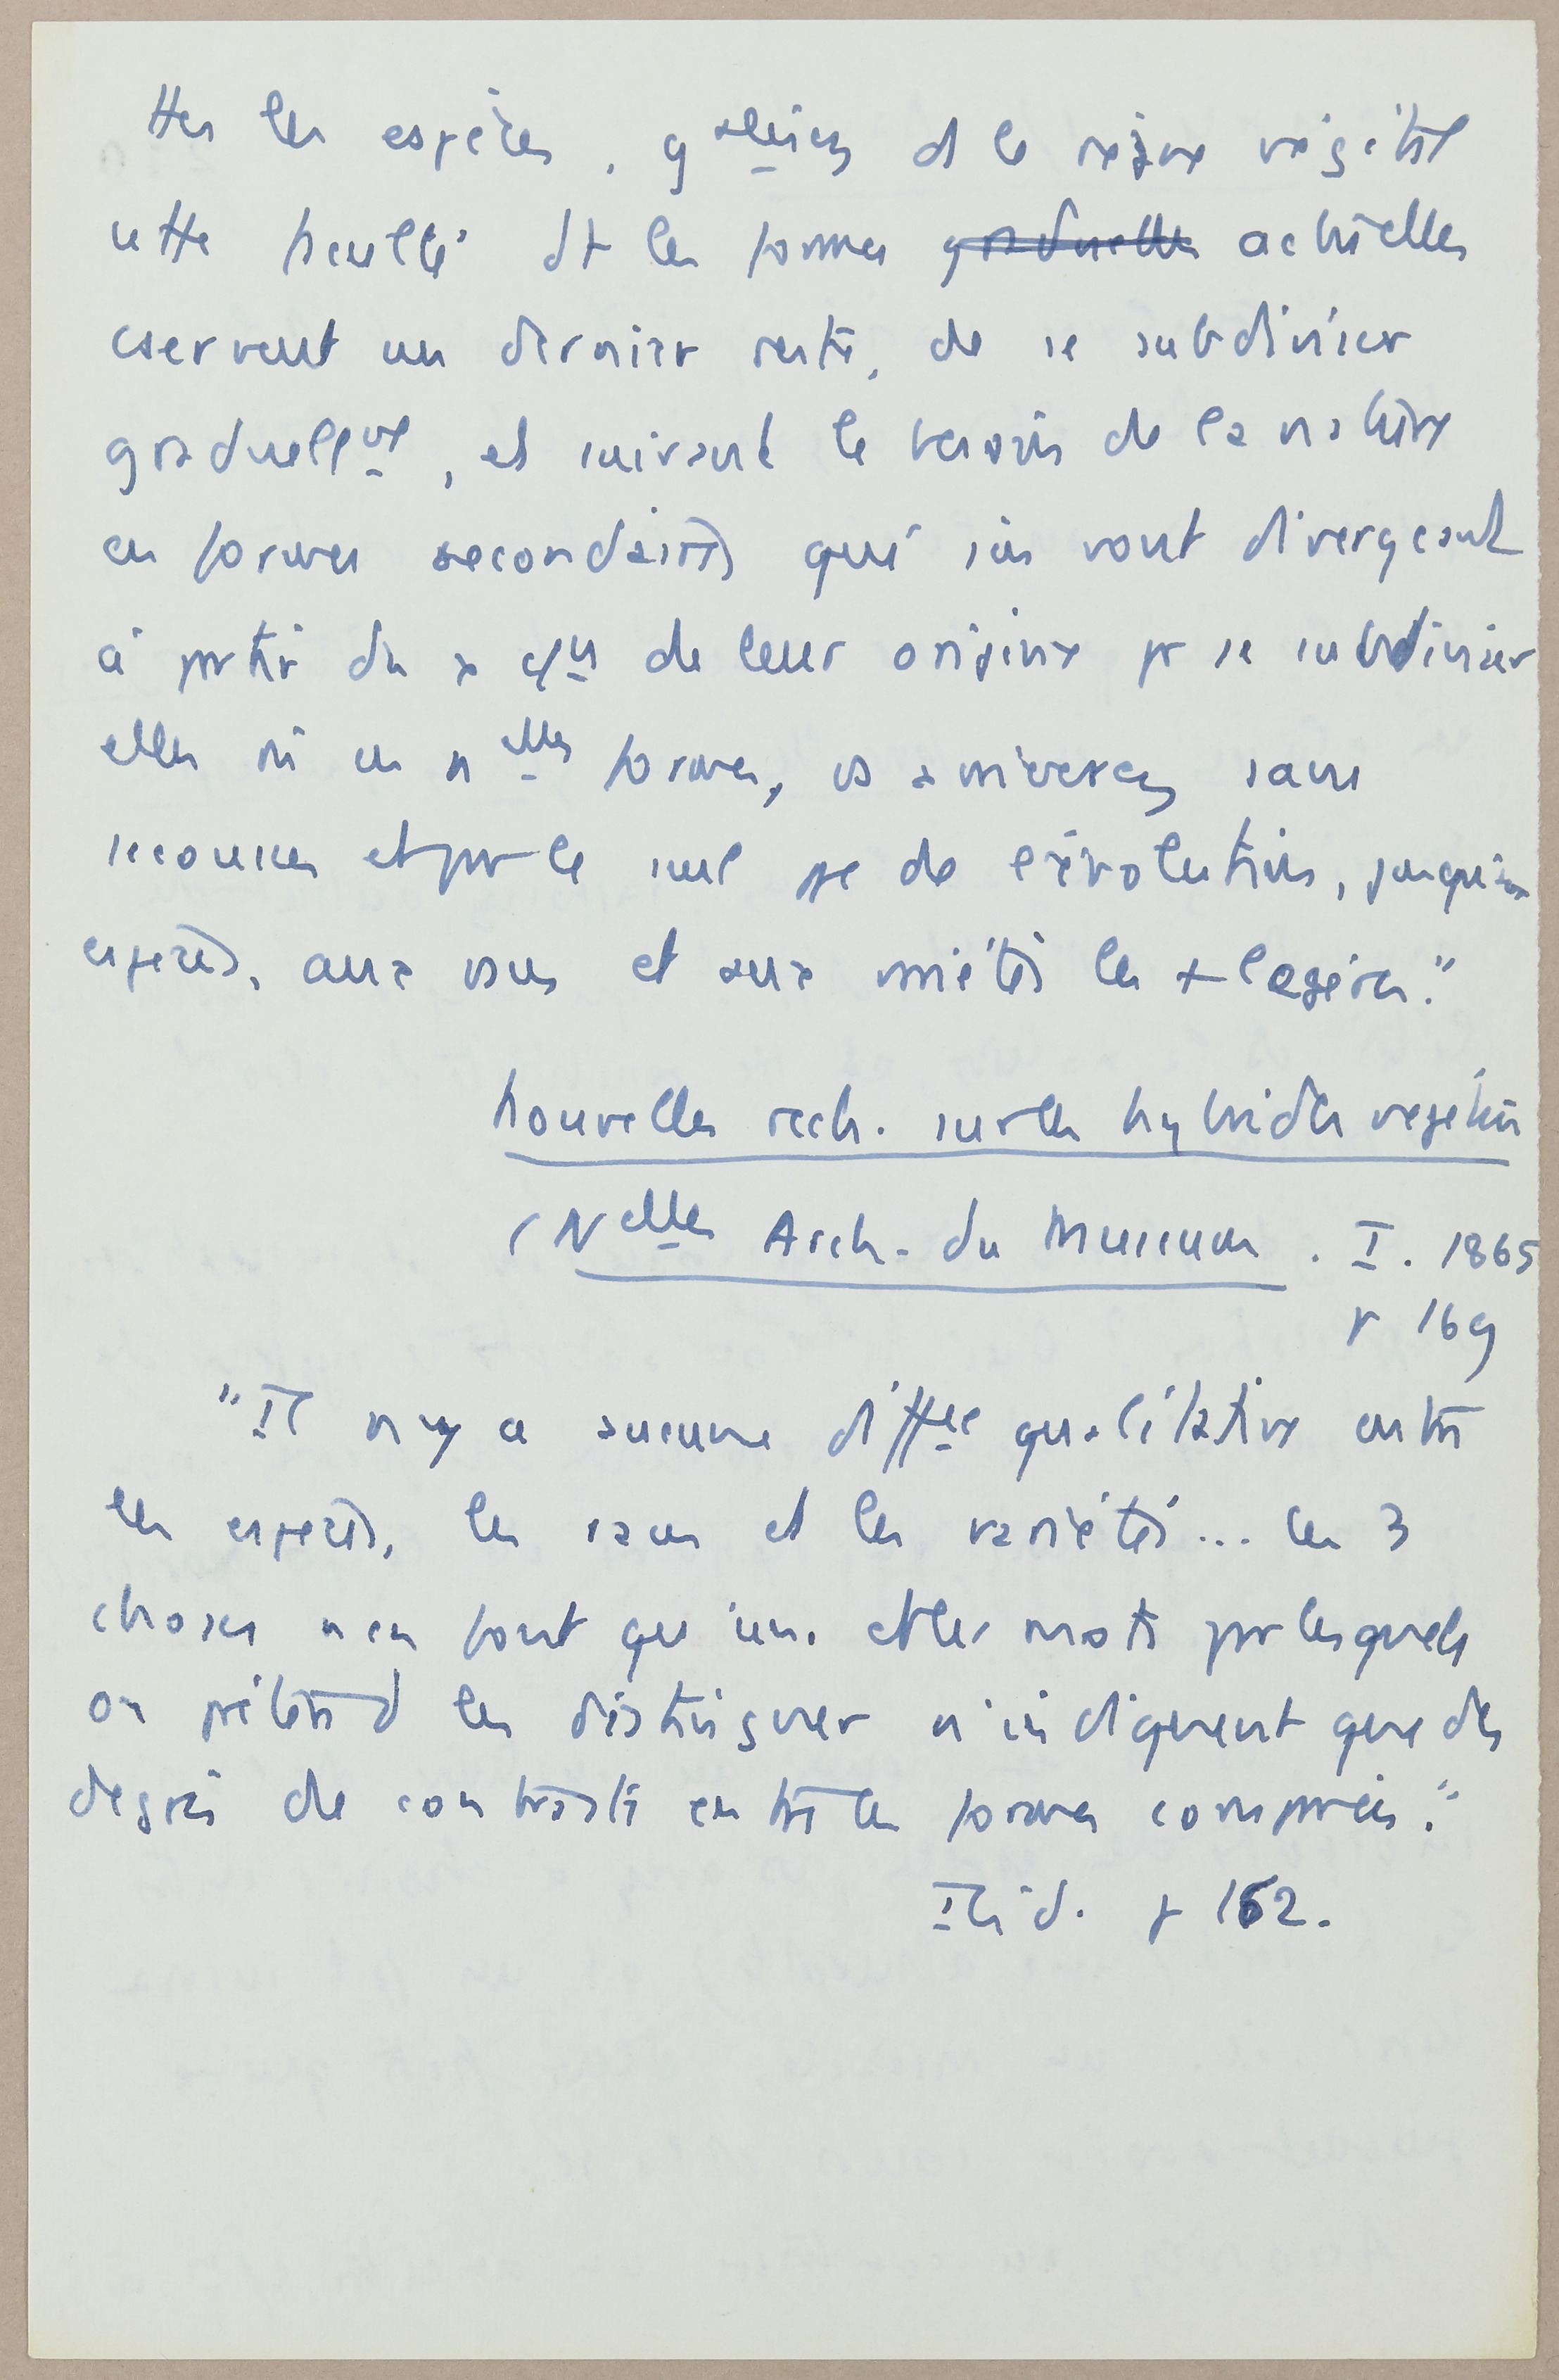 ttes les espèces, g^ales d le règne végétal
cette faculté dt les formes ~~graduelles~~ actuelles
cservent un dernier reste, de se subdiviser
graduell^mt, et suivant le besoin de la nature
en formes secondaires qui s'en vont divergeant
à partir du pt de leur origine pr se subdiviser
elles m en n^elles formes, on arrivera sans
secousses et par le seul pe de l'évolution, jusqu'aux
espèces, aux races et aux variétés les + légères."
Nouvelles rech. sur les hybrides végétaux
(N^elles Arch. du Museum. I. 1865
p 169
"Il n'y a aucune diff^ce qualitative entre
les espèces, les races et les variétés... les 3
choses n'en font qu'une et les mots par lesquels
on prétend les distinguer n'indiquent que des
degrés de contraste entre les formes comparées."
Ibid. p 162.